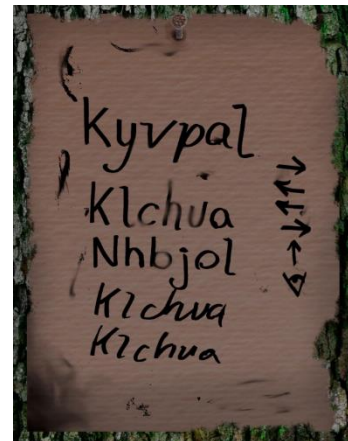 Kyvpal
Klchua
Nhbjol
Klchua
Klchua